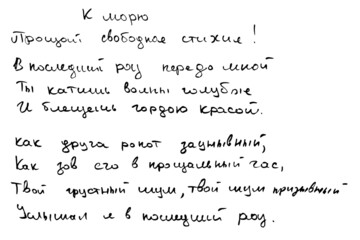 К морю
Прощай свободная стихия!
В последний раз передо мной
Ты катишь волны голубые
И блещешь гордою красой.
Как друга ропот заунывный,
Как зов его в прощальный час,
Твой грустный шум, твой шум призывный
Услышал я в последний раз.